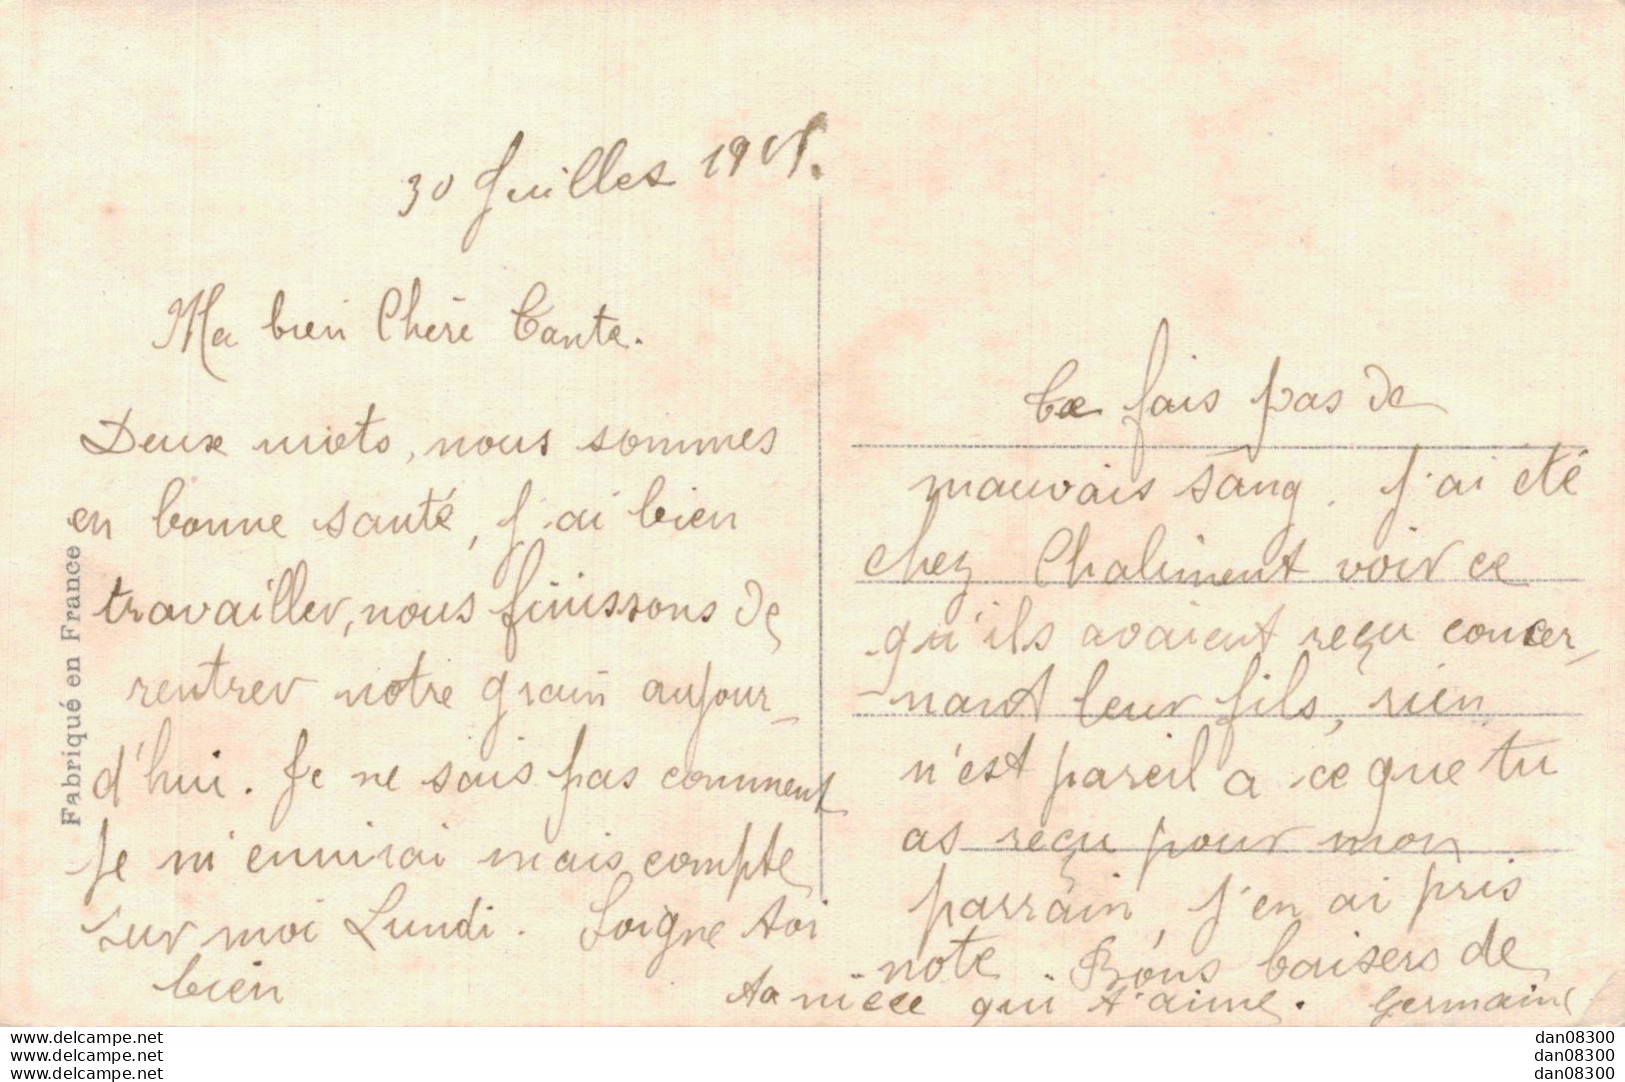 30 Juillet
Ma bien Chère Tante.
Deux mots, nous sommes
en bonne santé, j'ai bien
travailler, nous finissons de
rentrer notre grain aujour-
d'hui. Je ne sais pas comment
je m'en mais compte
sur moi Lundi. Soigne toi
bien
te fais pas de
mauvais sang. J'ai été
chez Chaliment voir ce
qu'ils avaient reçu concer-
-nant leur fils, rien
n'est pareil a ce que tu
as reçu pour mon
parrain, j'en ai pris
note. Bons baisers de
ta niece qui t'aime. Germaine
Fabriqué en France
www.delcampe.net dan08300
www.delcampe.net dan08300
www.delcampe.net dan08300